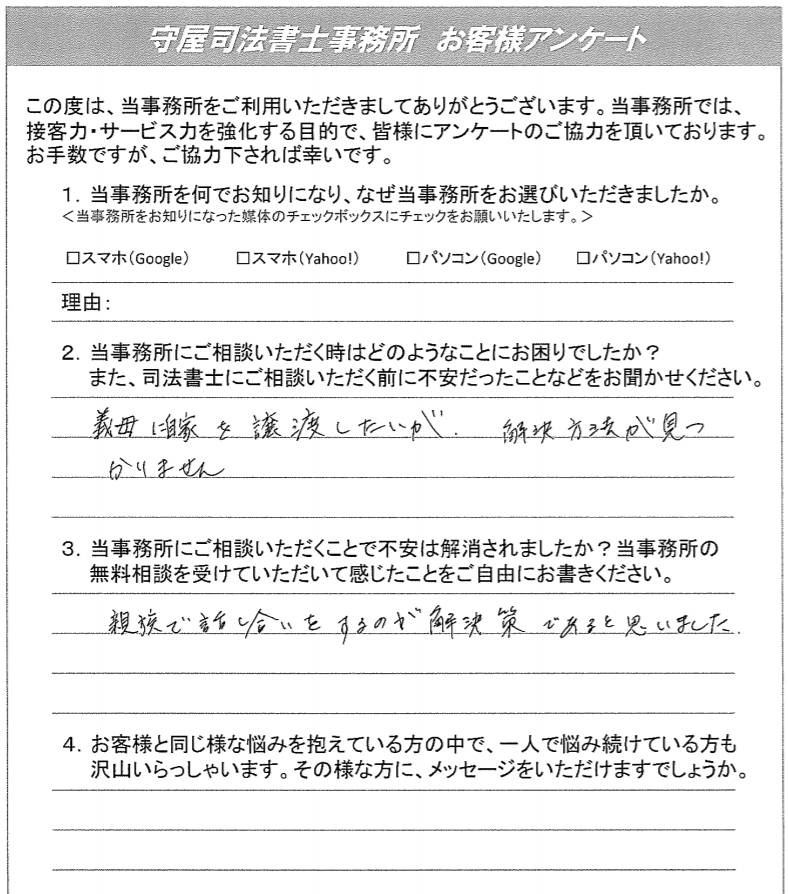 守屋司法書士事務所 お客様アンケート
この度は、当事務所をご利用いただきましてありがとうございます。当事務所では、
接客力・サービス力を強化する目的で、皆様にアンケートのご協力を頂いております。
お手数ですが、ご協力下されば幸いです。
1. 当事務所を何でお知りになり、なぜ当事務所をお選びいただきましたか。
<当事務所をお知りになった媒体のチェックボックスにチェックをお願いいたします。>
□スマホ(Google) □スマホ(Yahoo!) □パソコン(Google) □パソコン(Yahoo!)
理由:
2. 当事務所にご相談いただく時はどのようなことにお困りでしたか?
また、司法書士にご相談いただく前に不安だったことなどをお聞かせください。
義母に自家を譲渡したいが、解決方法が見つ
かりません
3. 当事務所にご相談いただくことで不安は解消されましたか?当事務所の
無料相談を受けていただいて感じたことをご自由にお書きください。
親族で話し合いをするのが解決策であると思いました.
4. お客様と同じ様な悩みを抱えている方の中で、一人で悩み続けている方も
沢山いらっしゃいます。その様な方に、メッセージをいただけますでしょうか。